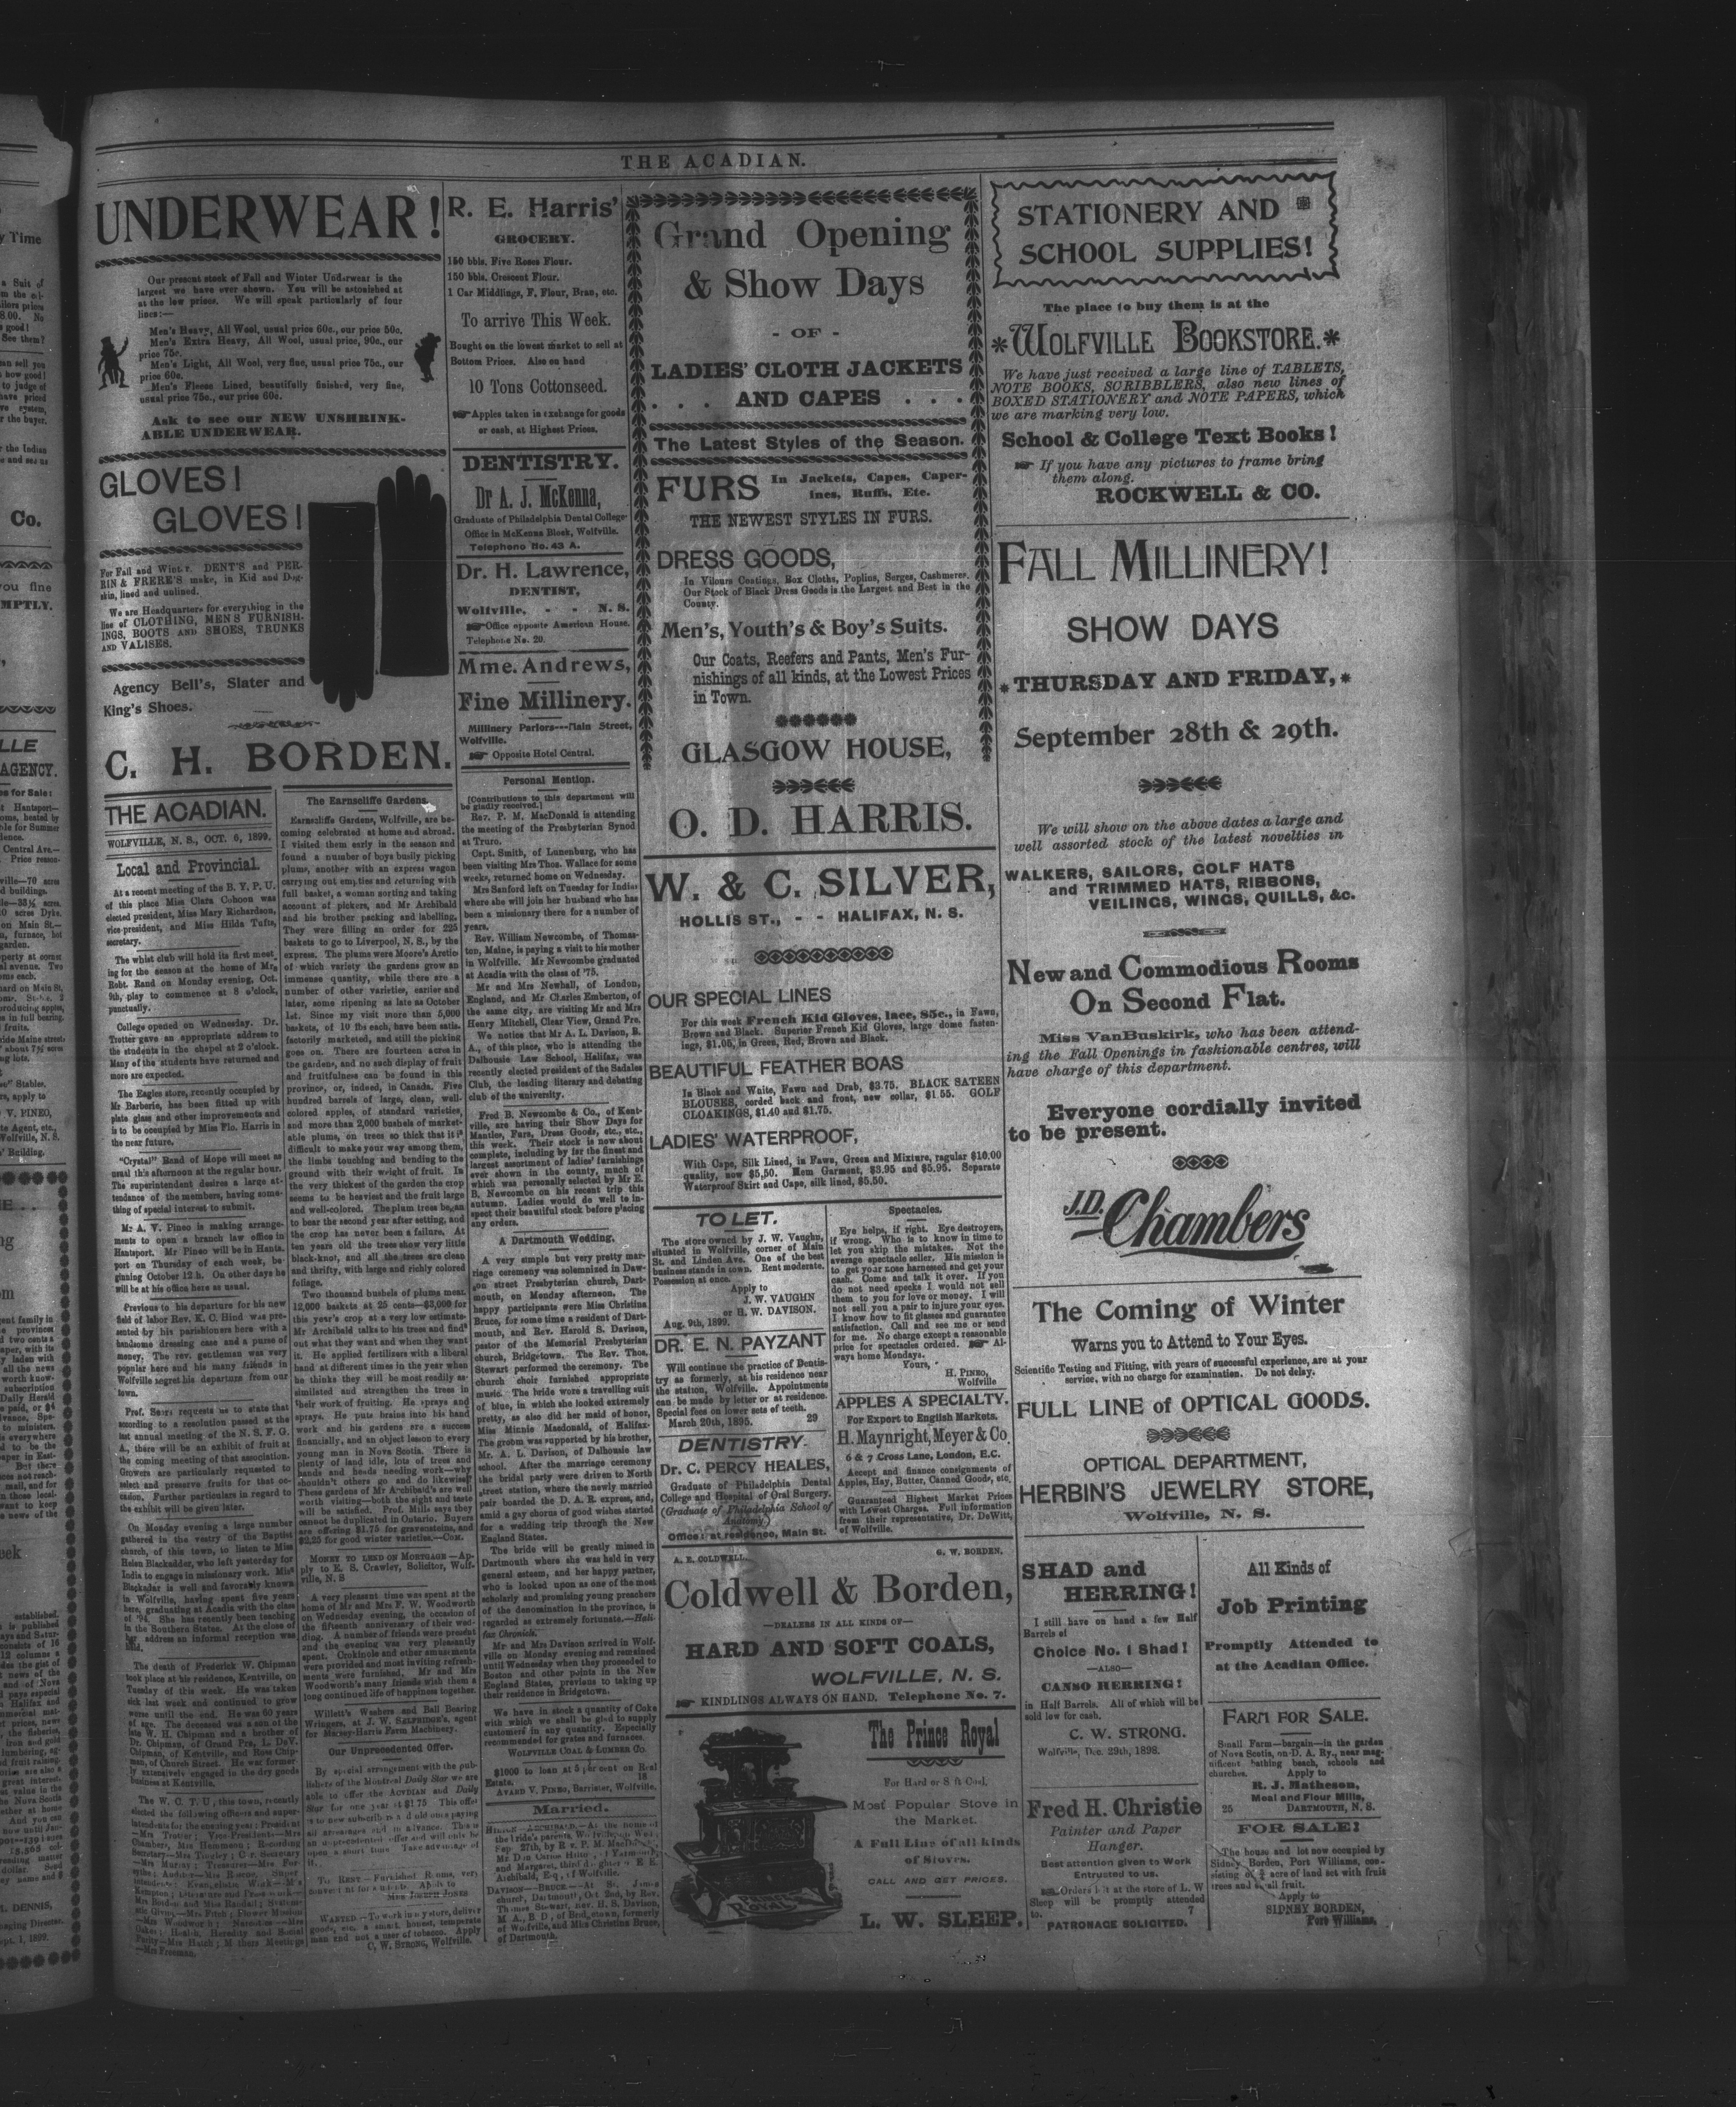 THE ACADIAN.
UNDERWEAR!
Our present stock of Fall and Winter Underwear is the
largest we have ever shown. You will be astonished at
at the low prices. We will speak particularly of four
lines:—
Men's Heavy, All Wool, usual price 60c., our price 50c.
Men's Extra Heavy, All Wool, usual price, 90c., our
price 75c.
Men's Light, All Wool, very fine, usual price 75c., our
price 60c.
Men's Fleece Lined, beautifully finished, very fine,
usual price 75c., our price 60c.
Ask to see our NEW UNSHRINK-
ABLE UNDERWEAR.
GLOVES!
GLOVES!
For Fall and Winter. DENT'S and PER-
RIN & FRERE'S make, in Kid and Dog-
skin, lined and unlined.
We are Headquarters for everything in the
line of CLOTHING, MEN'S FURNISH-
INGS, BOOTS AND SHOES, TRUNKS
AND VALISES.
Agency Bell's, Slater and
King's Shoes.
C. H. BORDEN.
THE ACADIAN.
WOLFVILLE, N. S., OCT. 6, 1899.
Local and Provincial.
At a recent meeting of the B. Y. P. U.
of this place Miss Clara Cohoon was
elected president, Miss Mary Richardson,
vice-president, and Miss Hilda Tufts,
secretary.
The whist club will hold its first meet
ing for the season at the home of Mrs
Robt. Rand on Monday evening, Oct.
9th, play to commence at 8 o'clock,
punctually.
College opened on Wednesday. Dr.
Trotter gave an appropriate address to
the students in the chapel at 2 o'clock.
Many of the students have returned and
more are expected.
The Eagles store, recently occupied by
Mr Barberie, has been fitted up with
plate glass and other improvements and
is to be occupied by Miss Flo. Harris in
the near future.
"Crystal" Band of Hope will meet as
usual this afternoon at the regular hour.
The superintendent desires a large at-
tendance of the members, having some-
thing of special interest to submit.
Mr A. V. Pineo is making arrange-
ments to open a branch law office in
Hantsport. Mr Pineo will be in Hants-
port on Thursday of each week, be-
ginning October 12 h. On other days he
will be at his office here as usual.
Previous to his departure for his new
field of labor Rev. K. C. Hind was pre-
sented by his parishioners here with a
handsome dressing case and a purse of
money. The rev. gentleman was very
popular here and his many friends in
Wolfville regret his departure from our
town.
Prof. Sears requests us to state that
according to a resolution passed at the
last annual meeting of the N. S. F. G.
A., there will be an exhibit of fruit at
the coming meeting of that association.
Growers are particularly requested to
select and preserve fruits for that oc-
casion. Further particulars in regard to
the exhibit will be given later.
On Monday evening a large number
gathered in the vestry of the Baptist
church, of this town, to listen to Miss
Helen Blackadder, who left yesterday for
India to engage in missionary work. Miss
Blackadar is well and favorably known
in Wolfville, having spent five years
here, graduating at Acadia with the class
of '94. She has recently been teaching
in the Southern States. At the close of
her address an informal reception was
held.
The death of Frederick W. Chipman
took place at his residence, Kentville, on
Tuesday of this week. He was taken
sick last week and continued to grow
worse until the end. He was 60 years
of age. The deceased was a son of the
late W. H. Chipman and a brother of
Dr. Chipman, of Grand Pre, L. DeV.
Chipman, of Kentville, and Ross Chip-
man, of Church Street. He was former
ly extensively engaged in the dry goods
business at Kentville.
The W. C. T. U., this town, recently
elected the following officers and super-
intendents for the ensuing year: President
The Earnscliffe Gardens.
Earnscliffe Gardens, Wolfville, are be-
coming celebrated at home and abroad.
I visited them early in the season and
found a number of boys busily picking
plums, another with an express wagon
carrying out empties and returning with
full basket, a woman sorting and taking
account of pickers, and Mr Archibald
and his brother packing and labelling.
They were filling an order for 225
baskets to go to Liverpool, N. S., by the
express. The plums were Moore's Arctic
of which variety the gardens grow an
immense quantity, while there are a
number of other varieties, earlier and
later, some ripening as late as October
1st. Since my visit more than 5,000
baskets, of 10 lbs each, have been satis-
factorily marketed, and still the picking
goes on. There are fourteen acres in
the gardens, and no such display of fruit
and fruitfulness can be found in this
province, or, indeed, in Canada. Five
hundred barrels of large, clean, well-
colored apples, of standard varieties,
and more than 2,000 bushels of market-
able plums, on trees so thick that it is
difficult to make your way among them,
the limbs touching and bending to the
ground with their weight of fruit. In
the very thickest of the garden the crop
seems to be heaviest and the fruit large
and well-colored. The plum trees began
to bear the second year after setting, and
the crop has never been a failure. At
ten years old the trees show very little
black-knot, and all the trees are clean
and thrifty, with large and richly colored
foliage.
Two thousand bushels of plums mean
12,000 baskets at 25 cents—$3,000 for
this year's crop at a very low estimate.
Mr Archibald talks to his trees and finds
out what they want and when they want
it. He applied fertilizers with a liberal
hand at different times in the year when
he thinks they will be most readily as-
similated and strengthen the trees in
their work of fruiting. He sprays and
sprays. He puts brains into his hand
work and his gardens are a success
financially, and an object lesson to every
young man in Nova Scotia. There is
plenty of land idle, lots of trees and
hands and heads needing work—why
shouldn't others go and do likewise?
These gardens of Mr Archibald's are well
worth visiting—both the sight and taste
will be satisfied. Prof. Mills says they
cannot be duplicated in Ontario. Buyers
are offering $1.75 for gravensteins, and
$2.25 for good winter varieties.—COM.
MONEY TO LEND ON MORTGAGE—Ap-
ply to E. S. Crawley, Solicitor, Wolf-
ville, N. S
A very pleasant time was spent at the
home of Mr and Mrs F. W. Woodworth
on Wednesday evening, the occasion of
the fifteenth anniversary of their wed-
ding. A number of friends were present
and the evening was very pleasantly
spent. Crokinole and other amusements
were provided and most inviting refresh-
ments were furnished. Mr and Mrs
Woodworth's many friends wish them a
long continued life of happiness together.
Willett's Washers and Ball Bearing
Wringers, at J. W. SELFRIDGE'S, agent
for Massey-Harris Farm Machinery.
Our Unprecedented Offer.
By special arrangement with the pub-
lishers of the Montreal Daily Star we are
able to offer the ACADIAN and Daily
Star for one year at $1.75 This offer
TO RENT—Furnished Rooms, very
MRS JOSEPH JONES
WANTED—To work in my store, deliver
goods, etc. a smart, honest, temperate
man and not a user of tobacco. Apply
C. W. STRONG, Wolfville.
R. E. Harris'
GROCERY.
150 bbls. Five Roses Flour.
150 bbls. Crescent Flour.
1 Car Middlings, F. Flour, Bran, etc.
To arrive This Week.
Bought on the lowest market to sell at
Bottom Prices. Also on hand
10 Tons Cottonseed.
Apples taken in exchange for goods
or cash, at Highest Prices.
DENTISTRY.
Dr A. J. McKenna,
Graduate of Philadelphia Dental College
Office in McKenna Block, Wolfville.
Telephone No. 43 A.
Dr. H. Lawrence,
DENTIST,
Wolfville, - - N. S.
Office opposite American House.
Telephone No. 20.
Mme. Andrews,
Fine Millinery.
Millinery Parlors---Main Street,
Wolfville.
Opposite Hotel Central.
Personal Mention.
[Contributions to this department will
be gladly received.]
Rev. P. M. MacDonald is attending
the meeting of the Presbyterian Synod
at Truro.
Capt. Smith, of Lunenburg, who has
been visiting Mrs Thos. Wallace for some
weeks, returned home on Wednesday.
Mrs Sanford left on Tuesday for India
where she will join her husband who has
been a missionary there for a number of
years.
Rev. William Newcombe, of Thomas-
ton, Maine, is paying a visit to his mother
in Wolfville. Mr Newcombe graduated
at Acadia with the class of '75.
Mr and Mrs Newhall, of London,
England, and Mr Charles Emberton, of
the same city, are visiting Mr and Mrs
Henry Mitchell, Clear View, Grand Pre.
We notice that Mr A. L. Davison, B.
A., of this place, who is attending the
Dalhousie Law School, Halifax, was
recently elected president of the Sadales
Club, the leading literary and debating
club of the university.
Fred B. Newcombe & Co., of Kent-
ville, are having their Show Days for
Mantles, Furs, Dress Goods, etc., etc.,
this week. Their stock is now about
complete, including by far the finest and
largest assortment of ladies' furnishings
ever shown in the county, much of
which was personally selected by Mr E.
B. Newcombe on his recent trip this
autumn. Ladies would do well to in-
spect their beautiful stock before placing
any orders.
A Dartmouth Wedding.
A very simple but very pretty mar-
riage ceremony was solemnized in Daw-
son street Presbyterian church, Dart-
mouth, on Monday afternoon. The
happy participants were Miss Christina
Bruce, for some time a resident of Dart-
mouth, and Rev. Harold S. Davison,
pastor of the Memorial Presbyterian
church, Bridgetown. The Rev. Thos.
Stewart performed the ceremony. The
church choir furnished appropriate
music. The bride wore a travelling suit
of blue, in which she looked extremely
pretty, as also did her maid of honor,
Miss Minnie Macdonald, of Halifax.
The groom was supported by his brother,
Mr. A. L. Davison, of Dalhousie law
school. After the marriage ceremony
the bridal party were driven to North
street station, where the newly married
pair boarded the D. A. R. express, and,
amid a gay chorus of good wishes started
for a wedding trip through the New
England States.
The bride will be greatly missed in
Dartmouth where she was held in very
general esteem, and her happy partner,
who is looked upon as one of the most
scholarly and promising young preachers
of the denomination in the province, is
regarded as extremely fortunate.—Hali-
fax Chronicle.
Mr and Mrs Davison arrived in Wolf-
ville on Monday evening and remained
until Wednesday when they proceeded to
Boston and other points in the New
England States, previous to taking up
their residence in Bridgetown.
We have in stock a quantity of Coke
with which we shall be glad to supply
customers in any quantity. Especially
recommended for grates and furnaces.
WOLFVILLE COAL & LUMBER CO.
$1000 to loan at 5 per cent on Real
Estate. 18
AVARD V. PINEO, Barrister, Wolfville.
Married.
DAVISON—BRUCE.—At St. James
church, Dartmouth, Oct 2nd, by Rev.
Thomas Stewart, Rev. H. S. Davison,
of Wolfville, and Miss Christina Bruce,
of Dartmouth.
Grand Opening
& Show Days
- OF -
LADIES' CLOTH JACKETS
. . . AND CAPES . . .
The Latest Styles of the Season.
FURS In Jackets, Capes, Caper-
ines, Ruffs, Etc.
THE NEWEST STYLES IN FURS.
DRESS GOODS,
In Vilours Coatings, Box Cloths, Poplins, Serges, Cashmeres.
Our Stock of Black Dress Goods is the Largest and Best in the
County.
Men's, Youth's & Boy's Suits.
Our Coats, Reefers and Pants, Men's Fur-
nishings of all kinds, at the Lowest Prices
in Town.
GLASGOW HOUSE,
O. D. HARRIS.
W. & C. SILVER,
HOLLIS ST., - - HALIFAX, N. S.
OUR SPECIAL LINES
For this week French Kid Gloves, lace, 85c., in Fawn,
Brown and Black. Superior French Kid Gloves, large dome fasten-
ings, $1.05, in Green, Red, Brown and Black.
BEAUTIFUL FEATHER BOAS
In Black and White, Fawn and Drab, $3.75. BLACK SATEEN
BLOUSES, corded back and front, new collar, $1.55. GOLF
CLOAKINGS, $1.40 and $1.75.
LADIES' WATERPROOF,
With Cape, Silk Lined, in Fawn, Green and Mixture, regular $10.00
quality, now $5.50. Hem Garment, $3.95 and $5.95. Separate
Waterproof Skirt and Cape, silk lined, $5.50.
TO LET.
The store owned by J. W. Vaughn,
situated in Wolfville, corner of Main
St. and Linden Ave. One of the best
business stands in town. Rent moderate.
Possession at once.
Apply to
J. W. VAUGHN
or H. W. DAVISON.
Aug. 9th, 1899.
DR. E. N. PAYZANT
Will continue the practice of Dentis-
try as formerly, at his residence near
the station, Wolfville. Appointments
can be made by letter or at residence.
Special fees on lower sets of teeth.
March 20th, 1895. 29
DENTISTRY.
Dr. C. PERCY HEALES,
Graduate of Philadelphia Dental
College and Hospital of Oral Surgery.
(Graduate of Philadelphia School of
Anatomy.)
Office: at residence, Main St.
Spectacles.
Eye helps, if right. Eye destroyers,
if wrong. Who is to know in time to
let you skip the mistakes. Not the
average spectacle seller. His mission is
to get your nose harnessed and get your
cash. Come and talk it over. If you
do not need specks I would not sell
them to you for love or money. I will
not sell you a pair to injure your eyes.
I know how to fit glasses and guarantee
satisfaction. Call and see me or send
for me. No charge except a reasonable
price for spectacles ordered. Al-
ways home Mondays.
Yours,
H. PINEO,
Wolfville
APPLES A SPECIALTY.
For Export to English Markets.
H. Maynright, Meyer & Co
6 & 7 Cross Lane, London, E.C.
Accept and finance consignments of
Apples, Hay, Butter, Canned Goods, etc.
Guaranteed Highest Market Prices
with Lowest Charges. Full information
from their representative, Dr. DeWitt,
of Wolfville.
A. E. COLDWELL. G. W. BORDEN.
Coldwell & Borden,
—DEALERS IN ALL KINDS OF—
HARD AND SOFT COALS,
WOLFVILLE, N. S.
KINDLINGS ALWAYS ON HAND. Telephone No. 7.
The Prince Royal
For Hard or Soft Coal.
Most Popular Stove in
the Market.
A Full Line of all kinds
of Stoves.
CALL AND GET PRICES.
L. W. SLEEP.
PRINCE ROYAL
STATIONERY AND
SCHOOL SUPPLIES!
The place to buy them is at the
*WOLFVILLE BOOKSTORE.*
We have just received a large line of TABLETS,
NOTE BOOKS, SCRIBBLERS, also new lines of
BOXED STATIONERY and NOTE PAPERS, which
we are marking very low.
School & College Text Books!
If you have any pictures to frame bring
them along.
ROCKWELL & CO.
FALL MILLINERY!
SHOW DAYS
*THURSDAY AND FRIDAY,*
September 28th & 29th.
We will show on the above dates a large and
well assorted stock of the latest novelties in
WALKERS, SAILORS, GOLF HATS
and TRIMMED HATS, RIBBONS,
VEILINGS, WINGS, QUILLS, &c.
New and Commodious Rooms
On Second Flat.
Miss VanBuskirk, who has been attend-
ing the Fall Openings in fashionable centres, will
have charge of this department.
Everyone cordially invited
to be present.
J.D. Chambers
The Coming of Winter
Warns you to Attend to Your Eyes.
Scientific Testing and Fitting, with years of successful experience, are at your
service, with no charge for examination. Do not delay.
FULL LINE of OPTICAL GOODS.
OPTICAL DEPARTMENT,
HERBIN'S JEWELRY STORE,
Wolfville, N. S.
SHAD and
HERRING!
I still have on hand a few Half
Barrels of
Choice No. 1 Shad!
—ALSO—
CANSO HERRING!
in Half Barrels. All of which will be
sold low for cash.
C. W. STRONG.
Wolfville, Dec. 29th, 1898.
Fred H. Christie
Painter and Paper
Hanger.
Best attention given to Work
Entrusted to us.
Orders left at the store of L. W
Sleep will be promptly attended
to. 7
PATRONAGE SOLICITED.
All Kinds of
Job Printing
Promptly Attended to
at the Acadian Office.
FARM FOR SALE.
Small Farm—bargain—in the garden
of Nova Scotia, on D. A. Ry., near mag-
nificent bathing beach, schools and
churches. Apply to
R. J. Matheson,
Meal and Flour Mills,
25 DARTMOUTH, N. S.
FOR SALE!
The house and lot now occupied by
Sidney Borden, Port Williams, con-
sisting of acre of land set with fruit
trees and small fruit.
Apply to
SIDNEY BORDEN,
Port Williams.